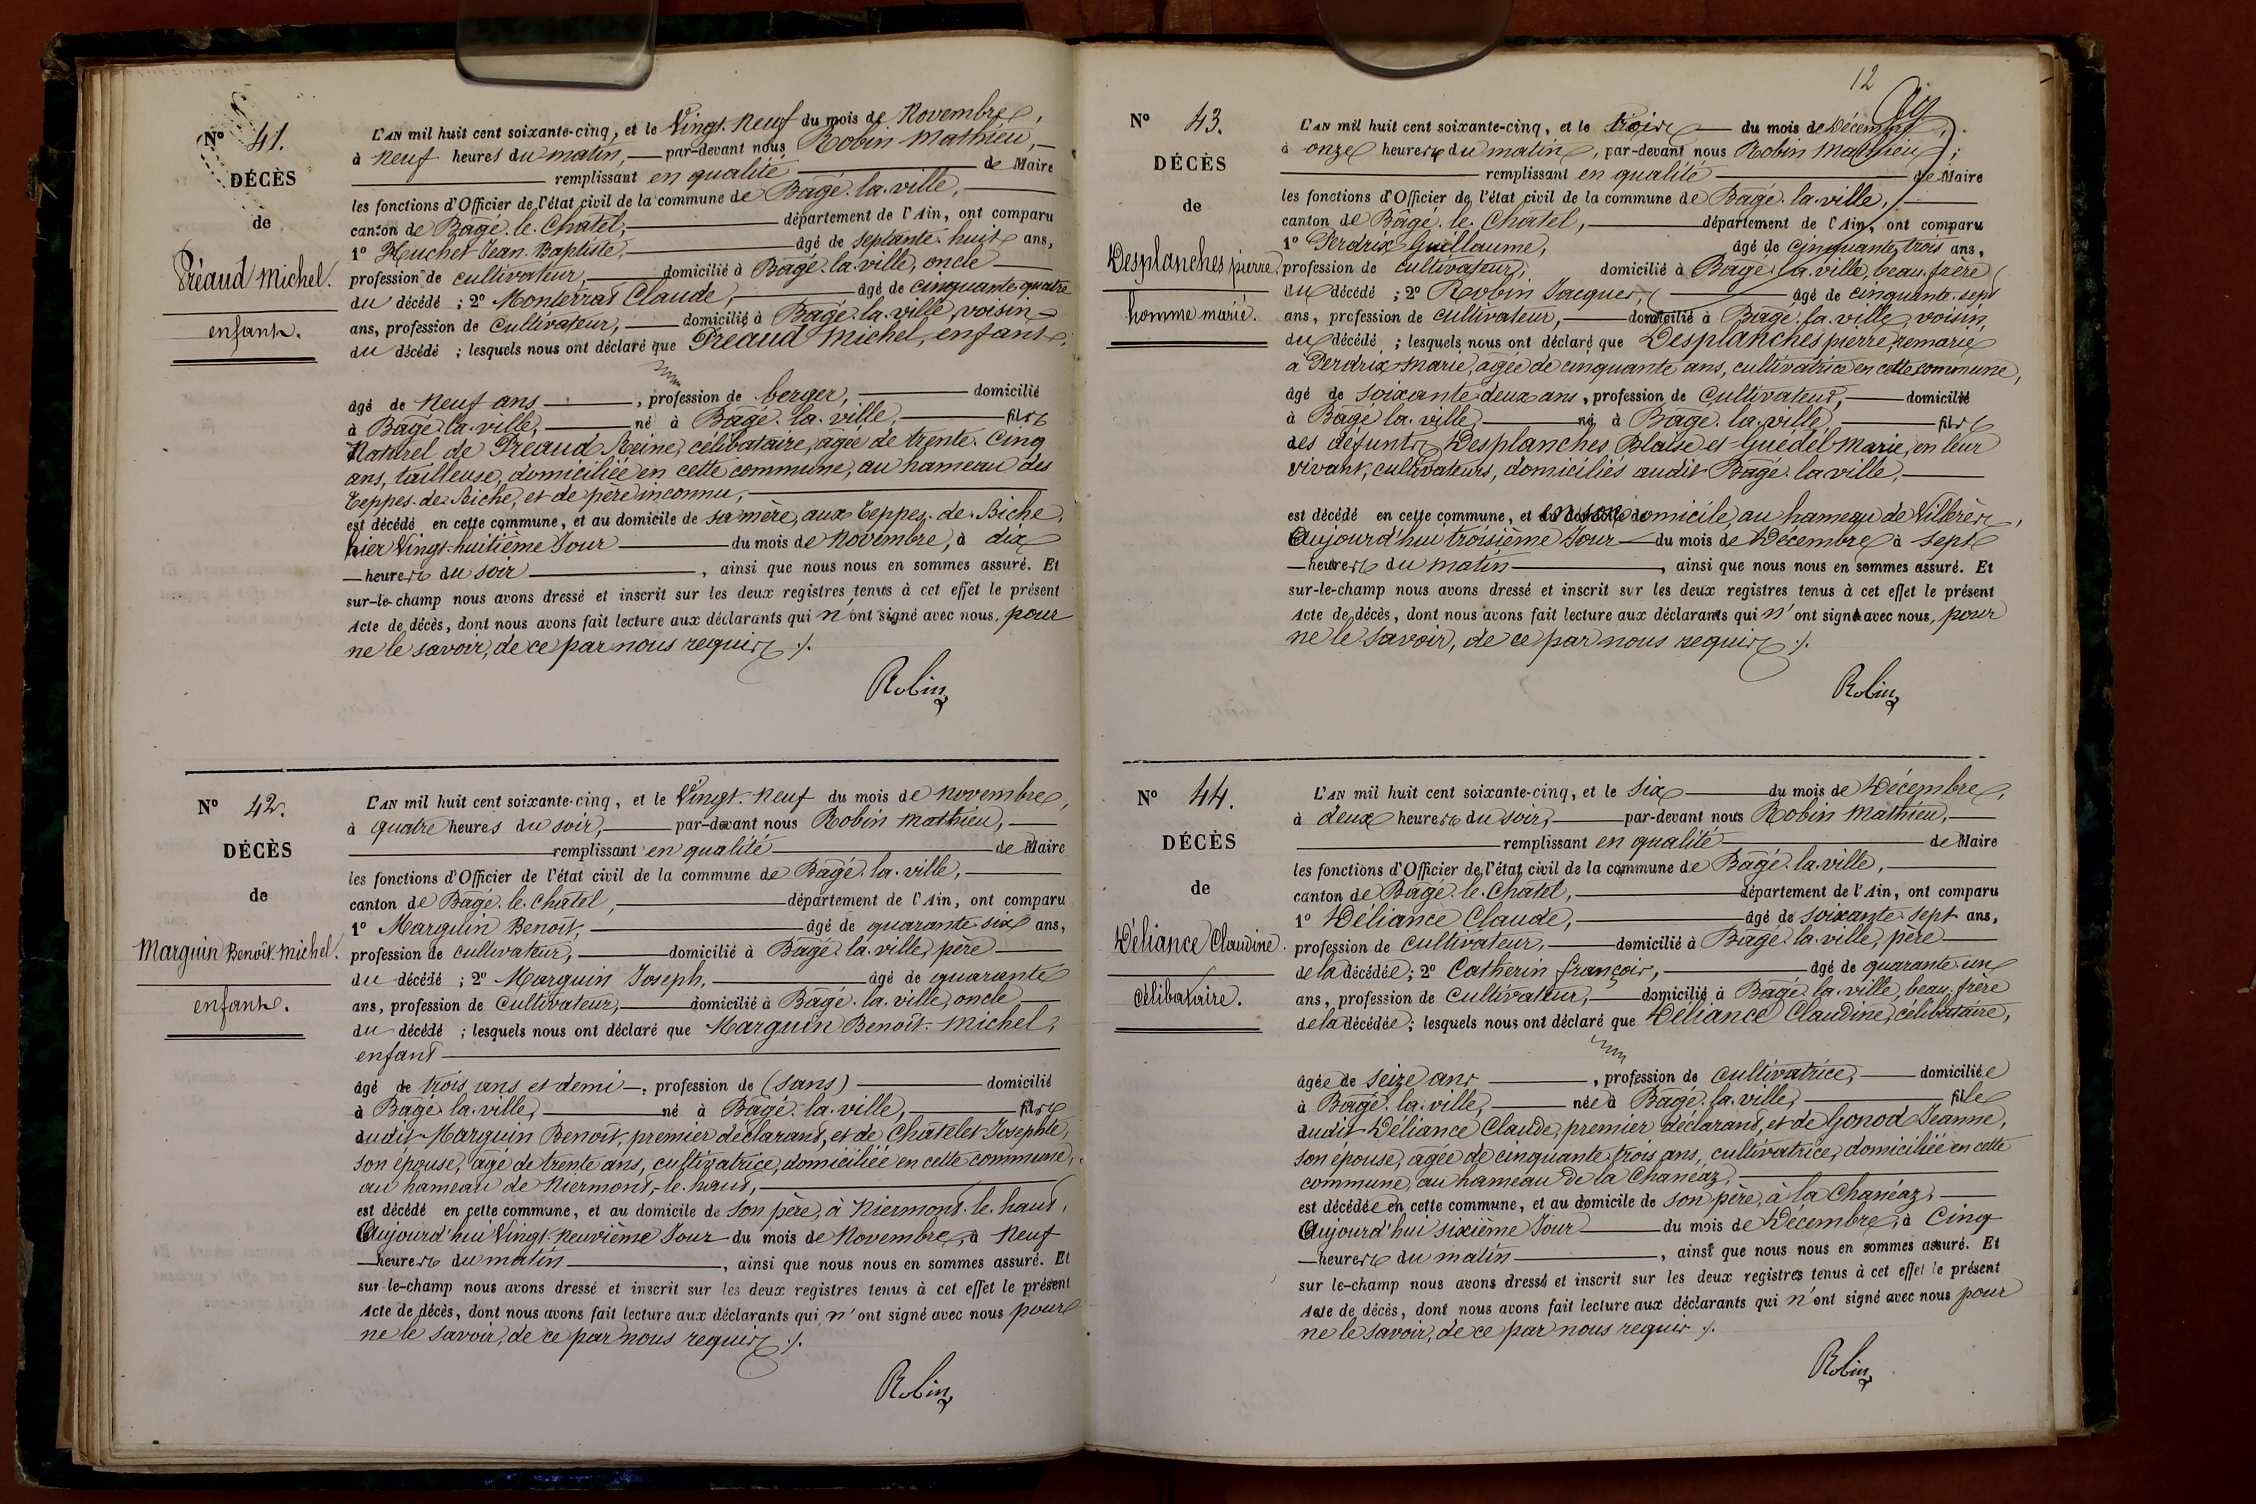 N° 41.
DÉCÈS
de
Préaud Michel.
enfant.
L'AN mil huit cent soixante-cinq, et le Vingt-Neuf du mois de Novembre,
à neuf heures du matin, par-devant nous Robin Mathieu,
remplissant en qualité de Maire
les fonctions d'Officier de l'état civil de la commune de Bagé-la-ville,
canton de Bagé-le-Chatel, département de l'Ain, ont comparu
1° Huchet Jean-Baptiste, âgé de septante-huit ans,
profession de cultivateur, domicilié à Bagé-la-ville, oncle
du décédé ; 2° Monterrat Claude, âgé de cinquante-quatre
ans, profession de cultivateur, domicilié à Bagé-la-ville, voisin
du décédé ; lesquels nous ont déclaré que Préaud Michel, enfant,
âgé de neuf ans, profession de berger, domicilié
à Bagé-la-ville, né à Bagé-la-ville, fils
Naturel de Préaud Reine, célibataire, âgée de trente-cinq
ans, tailleuse, domiciliée en cette commune, au hameau des
Teppes-de-Biche, et de père inconnu,
est décédé en cette commune, et au domicile de sa mère, aux Teppes-de-Biche,
hier Vingt-huitième Jour du mois de Novembre, à dix
heures du soir, ainsi que nous nous en sommes assuré. Et
sur-le-champ nous avons dressé et inscrit sur les deux registres tenus à cet effet le présent
Acte de décès, dont nous avons fait lecture aux déclarants qui n'ont signé avec nous, pour
ne le savoir, de ce par nous requis ./.
Robin
N° 42.
DÉCÈS
de
Marguin Benoît-Michel.
enfant.
L'AN mil huit cent soixante-cinq, et le Vingt-Neuf du mois de novembre,
à quatre heures du soir, par-devant nous Robin Mathieu,
remplissant en qualité de Maire
les fonctions d'Officier de l'état civil de la commune de Bagé-la-ville,
canton de Bagé-le-Chatel, département de l'Ain, ont comparu
1° Marguin Benoît, âgé de quarante-six ans,
profession de cultivateur, domicilié à Bagé-la-ville, père
du décédé ; 2° Marguin Joseph, âgé de quarante
ans, profession de cultivateur, domicilié à Bagé-la-ville, oncle
du décédé ; lesquels nous ont déclaré que Marguin Benoît-Michel,
enfant
âgé de trois ans et demi, profession de (sans) domicilié
à Bagé-la-ville, né à Bagé-la-ville, fils
dudit Marguin Benoît, premier déclarant, et de Châtelet Josephte,
son épouse, âgé de trente ans, cultivatrice, domiciliée en cette commune,
au hameau de Niermont-le-haut,
est décédé en cette commune, et au domicile de son père, à Niermont-le-haut,
Aujourd'hui Vingt-neuvième Jour du mois de Novembre, à Neuf
heures du matin, ainsi que nous nous en sommes assuré. Et
sur-le-champ nous avons dressé et inscrit sur les deux registres tenus à cet effet le présent
Acte de décès, dont nous avons fait lecture aux déclarants qui n'ont signé avec nous pour
ne le savoir, de ce par nous requis ./.
Robin
12
N° 43.
DÉCÈS
de
Desplanches pierre.
homme marié.
L'AN mil huit cent soixante-cinq, et le trois du mois de Décembre,
à onze heures du matin, par-devant nous Robin Mathieu,
remplissant en qualité de Maire
les fonctions d'Officier de l'état civil de la commune de Bagé-la-ville,
canton de Bâgé-le-Chatel, département de l'Ain, ont comparu
1° Perdrix Guillaume, âgé de cinquante-trois ans,
profession de cultivateur, domicilié à Bagé-la-ville, beau-frère
du décédé ; 2° Robin Jacques, âgé de cinquante-sept
ans, profession de cultivateur, domicilié à Bagé-la-ville, voisin,
du décédé ; lesquels nous ont déclaré que Desplanches pierre, remarié
à Perdrix Marie, agée de cinquante ans, cultivatrice en cette commune,
âgé de soixante-deux ans, profession de cultivateur, domicilié
à Bagé-la-ville, né à Bagé-la-ville, fils
des défunts Desplanches Blaise et Guédél Marie, en leur
vivant, cultivateurs, domiciliés audit Bagé-la-ville,
est décédé en cette commune, et en son domicile, au hameau de Villères,
Aujourd'hui troisième Jour du mois de Décembre à sept
heures du matin, ainsi que nous nous en sommes assuré. Et
sur-le-champ nous avons dressé et inscrit sur les deux registres tenus à cet effet le présent
Acte de décès, dont nous avons fait lecture aux déclarants qui n'ont signé avec nous, pour
ne le savoir, de ce par nous requis ./.
Robin
N° 44.
DÉCÈS
de
Déliance Claudine.
célibataire.
L'AN mil huit cent soixante-cinq, et le six du mois de Décembre,
à deux heures du soir, par-devant nous Robin Mathieu,
remplissant en qualité de Maire
les fonctions d'Officier de l'état civil de la commune de Bagé-la-ville,
canton de Bagé-le-Chatel, département de l'Ain, ont comparu
1° Déliance Claude, âgé de soixante-sept ans,
profession de cultivateur, domicilié à Bagé-la-ville, père
de la décédée ; 2° Catherin françois, âgé de quarante-un
ans, profession de cultivateur, domicilié à Bagé-la-ville, beau-frère
de la décédée ; lesquels nous ont déclaré que Déliance Claudine, célibataire,
âgée de seize ans, profession de cultivatrice, domiciliée
à Bagé-la-ville, née à Bagé-la-ville, fille
dudit Déliance Claude, premier déclarant, et de Gonod Jeanne,
son épouse, agée de cinquante-trois ans, cultivatrice, domiciliée en cette
commune, au hameau de la Chanéaz,
est décédée en cette commune, et au domicile de son père, à la Chanéaz,
Aujourd'hui sixième Jour du mois de Décembre, à Cinq
heures du matin, ainsi que nous nous en sommes assuré. Et
sur le-champ nous avons dressé et inscrit sur les deux registres tenus à cet effet le présent
Acte de décès, dont nous avons fait lecture aux déclarants qui n'ont signé avec nous pour
ne le savoir, de ce par nous requis ./.
Robin